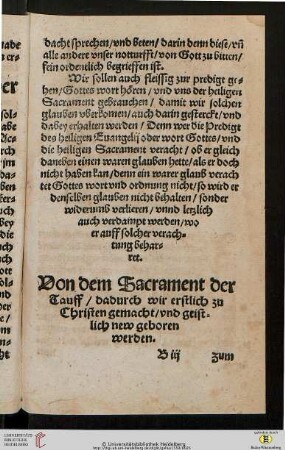 dacht sprechen/vnd beten/darin denn diese/vñ
alle andere vnser notturfft/von Gott zu bitten/
fein ordenlich begrieffen ist.
Wir sollen auch fleissig zur predigt ge-
hen/Gottes wort hören/vnd vns der heiligen
Sacrament gebrauchen/damit wir solchen
glauben vberkomen/auch darin gestercket/vnd
dabey erhalten werden/Denn wer die Predigt
des heiligen Euangelij oder wort Gottes/vnd
die heiligen Sacrament veracht/ob er gleich
daneben einen waren glauben hette/als er doch
nicht haben kan/denn ein warer glaub verach
tet Gottes wort vnd ordnung nicht/so wird er
denselben glauben nicht behalten/sonder
widerumb verlieren/vnnd letzlich
auch verdampt werden/wo
er auff solcher verach-
tung behar-
ret.
Von dem Sacrament der
Tauff/dadurch wir erstlich zu
Christen gemacht/vnd geist-
lich new geboren
werden.
B iij zum
© Universitätsbibliothek Heidelberg